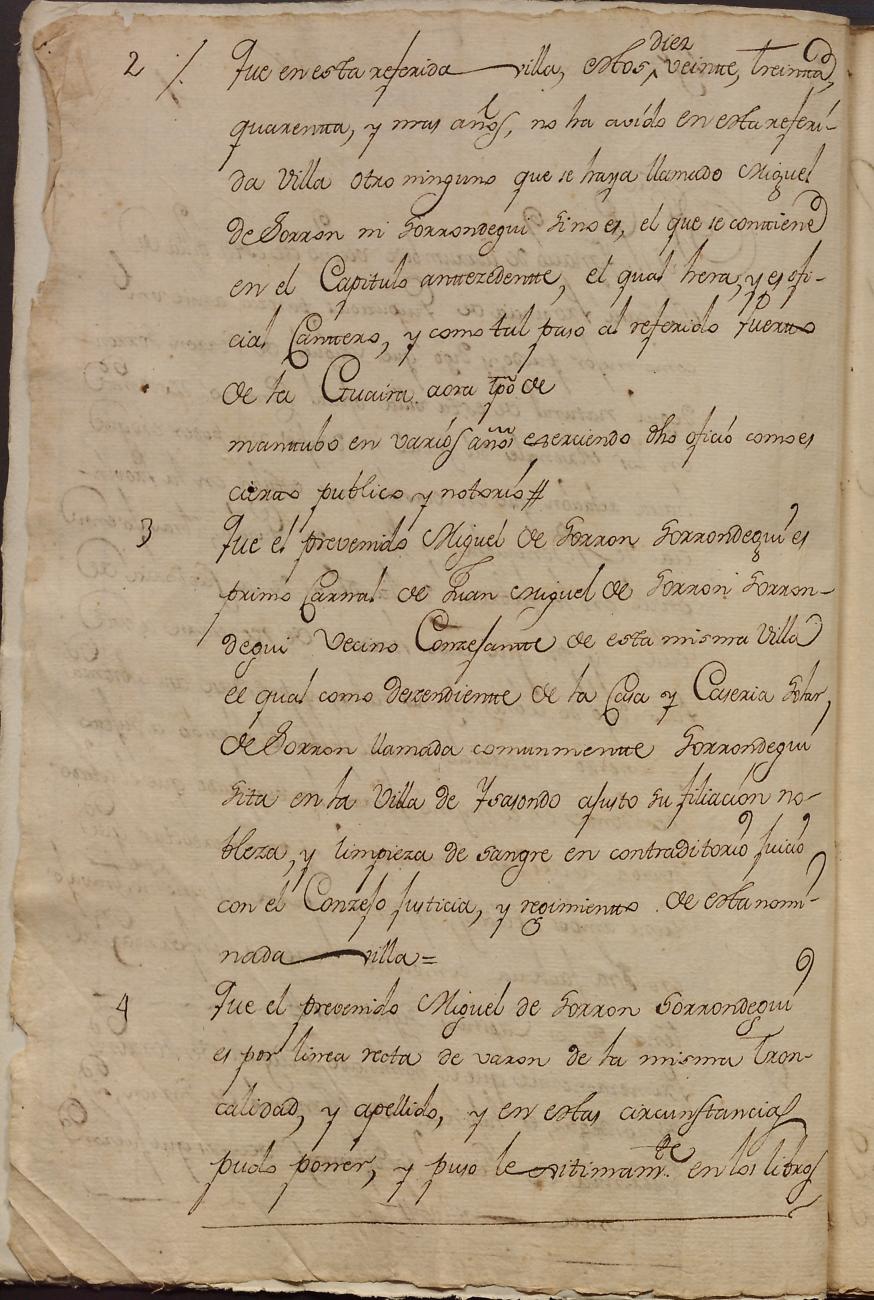 2 / Que en esta referida villa, estos ^diez veinte, treintta,
quarentta, y mas años, no ha avido en esta referi-
da Villa otro ninguno que se haya llamado Miguel
de Sorron ni Sorrondegui sino es, el que se conttiene
en el Capitulo anttezedentte, el qual hera, y es ofi-
cial Canttero, y como tal pasó al referido Puertto
de la Guaira aora tpo de
manttubo en varios años exerciendo dho oficio como es
ciertto publico y notorio #
3 Que el prevenido Miguel de Sorron Sorrondegui es
primo Carnal de Juan Miguel de Sorron Sorron-
degui Vecino Conzejantte de esta misma Villa
el qual como descendientte de la Casa y Caseria Solar,
de Sorron llamada comunmentte Sorrondegui
sita en la Villa de Ysasondo ajusto su filiación no-
bleza, y limpieza de sangre en contraditorio juicio
con el Conzejo justicia, y regimientto de esta nomi-
nada villa =
4 Que el prevenido Miguel de Sorron Sorrondegui
es por linea recta de varon de la misma tron-
calidad, y apellido, y en estas circunstancias
pudo poner, y puso lexitimamte en los libros